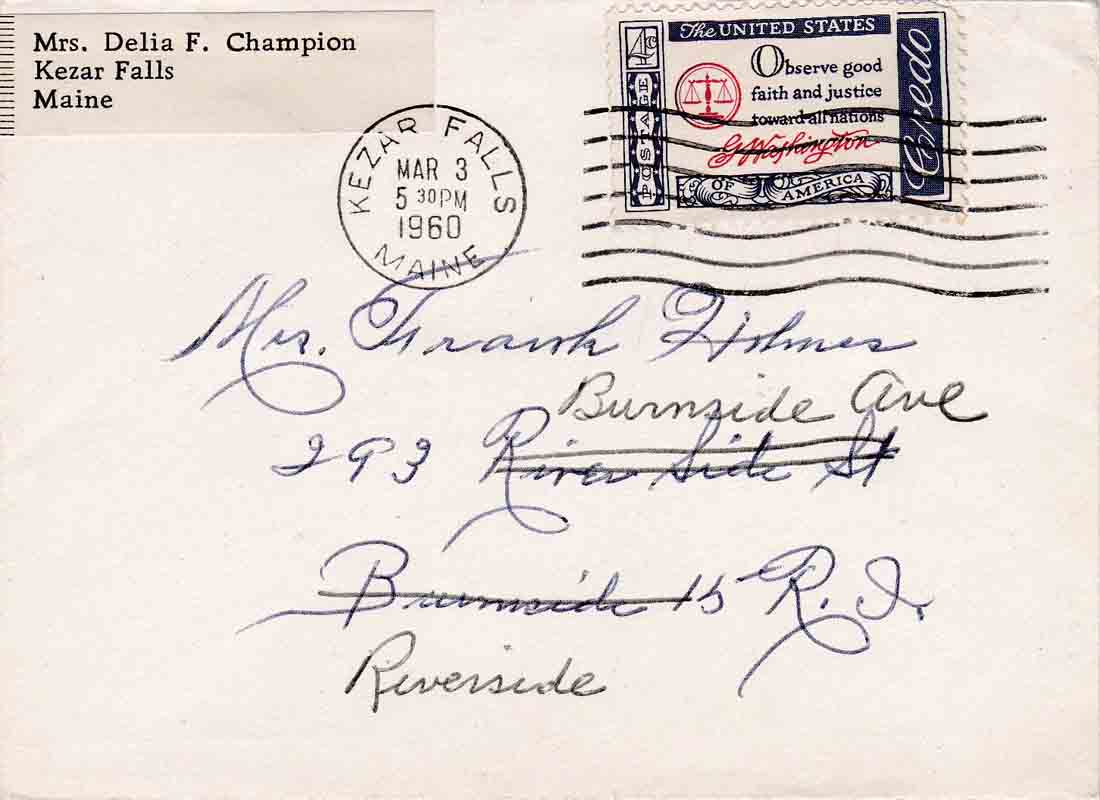 Mrs. Delia F. Champion
Kezar Falls
Maine
4c
POSTAGE
The UNITED STATES
Observe good
faith and justice
toward all nations
G Washington
OF
AMERICA
Credo
KEZAR FALLS
MAR 3
5 30 PM
1960
MAINE
Mrs. Frank Holmes
Burnside Ave
293 River Side St
Burnside 15 R. I.
Riverside